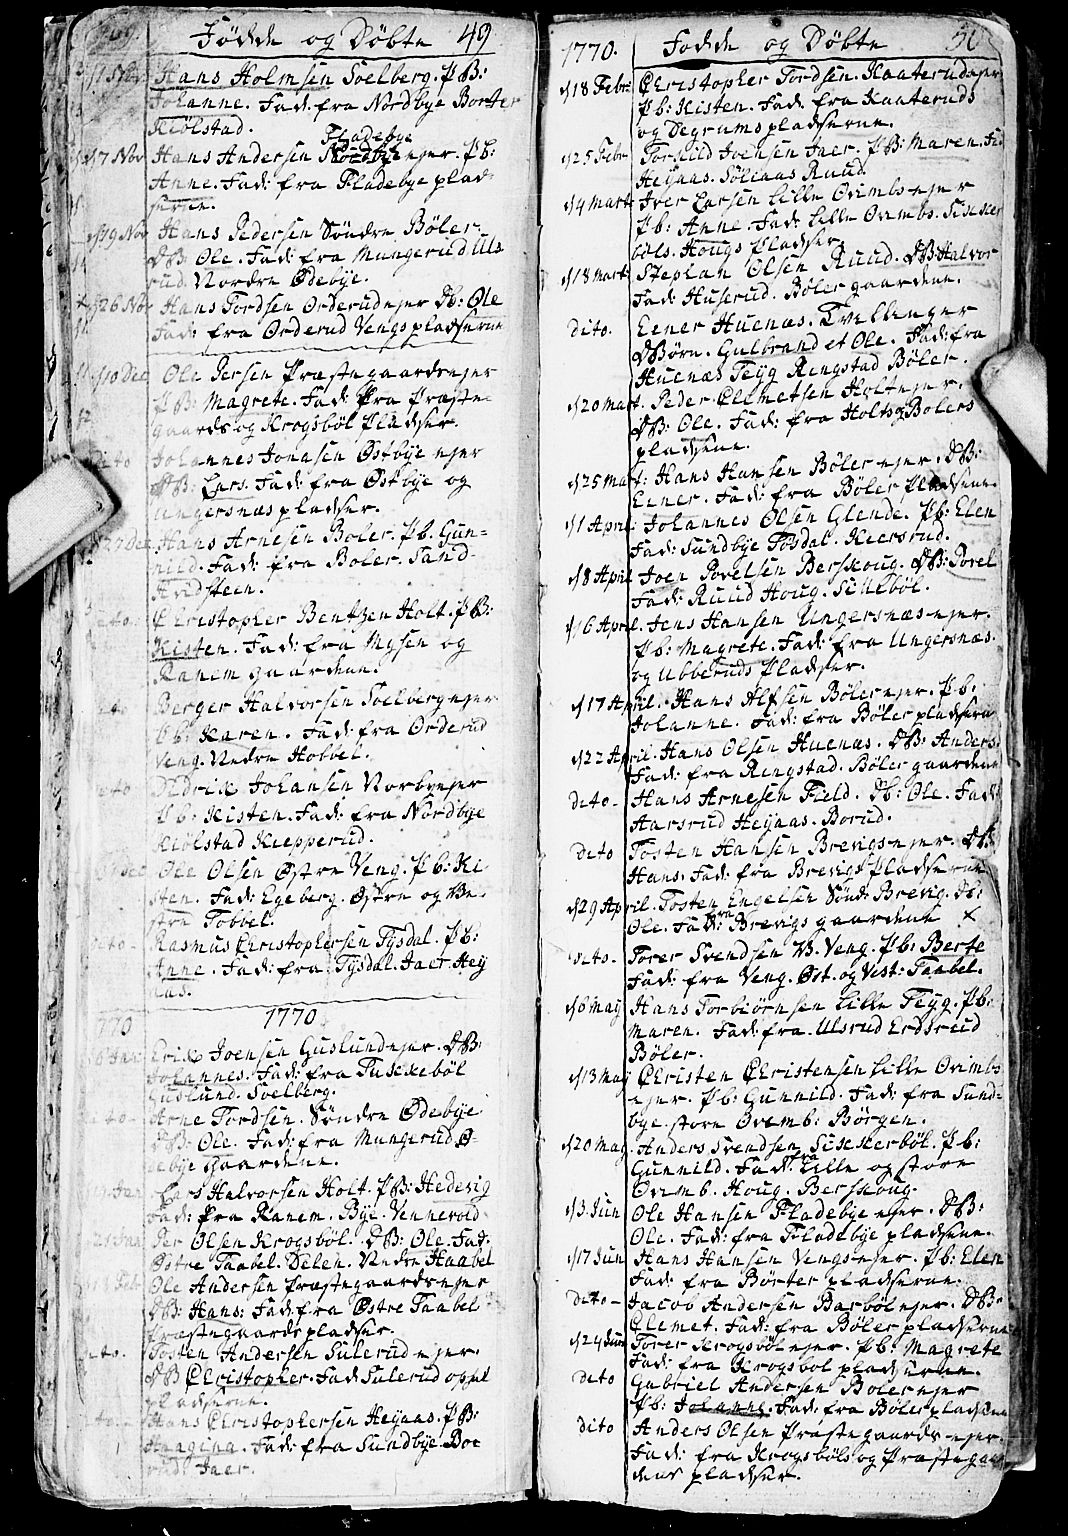 Fødde og Døbte 49
Hans Holmsen Soelberg. P B:
Johanne. Fad: fra Nordbye Borter
Kiølstad.
Fladebye
17 Nov Hans Andersen ejer. P b:
Anne. Fad: fra Fladebye plad-
serne.
19 Nov Hans Pedersen Søndre Bøler
D B: Ole. Fad: fra Mungerud Uls
rud. Nordre Ødebye.
26 Nov Hans Tordsen Orderud ejer D b: Ole
Fad: fra Orderud Vengs pladserne
10 Dec Ole Persen Præstegaards ejer
P B: Magrete. Fad: fra Præste-
gaards og Krogsbøl Pladser.
Dito Johannes Jonasen Østbye ejer
D B: Lars. Fad: fra Østbye og
Ungersnæs pladser.
27 Dec Hans Arnesen Boler. P b. Gun-
nild. Fad: fra Boler. Sand-
Hvidsteen.
Christopher Bentzen Holt. P B:
Kisten. Fad: fra Mysen og
Ranem gaardene.
Berger Halvorsen Soelberg ejer
P b: Karen. Fad: fra Orderud
Veng. Nedre Hobbel.
Didrik Johansen Norbye ejer
P b: Kisten. Fad: fra Nordbye
Kiølstad Kiepperud.
Ole Olsen Østre Veng. P b: Ki
sten. Fad: Egeberg. Østre og Ve-
stre Tobbel.
Dito Rasmus Christophersen Tysdal. P b:
Anne. Fad: fra Tysdal. Jaer Hey
aas.
1770
Erik Joensen Guslund ejer. D B:
Johannes. Fad: fra Tuskebøl
Guslund. Soelberg.
Arne Tordsen. Søndre Ødebye
D B: Ole. Fad: fra Mungerud Ø-
debye gaardene.
Lars Halvorsen Holt. P B: Hedevig
Fad: fra Ranem. Bye. Vennevold
Per Olsen Krogsbøl. D B: Ole. Fad:
Østre Taabel. Delen. Nedre Haabel
Ole Andersen Præstegaards ejer
D B: Hans: Fad: fra Østre Taabel
Præstegaards pladser.
Dito. Tosten Andersen Sulerud ejer.
D B Christopher. Fad Sulerud oppel
pladserne.
Hans Christophersen Heyaas. P B:
Haagina. Fad: fra Sundbye Bo
rud Jaer.
1770. Fødde og Døbte 50
18 Febr Christopher Tordsen. Kaaterud ejer
P b: Kisten. Fad. fra Kaateruds
og Degrums pladserne.
25 Febr Torkild Joensen Jaer. P B: Maren. Fad
Heyaas. Søliaas Ruud.
4 Mart Iver Larsen Lille Orimbs ejer
P b: Anne. Fad: Lille Orimbs. Siskier
bøls. Hougs Pladser
18 Mart Stephan Olsen Ruud. D B: Halvor
Fad: Huserud. Bøler gaardene.
Dito. Einer Huenæs. Tvillinger
D Børn. Gulbrand et Ole. Fad: fra
Huenæs Teyg Ringstad Bøler.
20 Mart. Peder Clemetsen Holt ejer.
D B: Ole. Fad: fra Holts og Bolers
pladsene.
25 Mart: Hans Hansen Bøler ejer. D B:
Einer. Fad: fra Bøler Pladsene.
1 April: Johannes Olsen Glende. P b: Elen
Fad: Sundbye Tosdal. Kiersrud.
8 April Joen Povelsen Berskoug. D B: Povel
Fad: Ruud Houg. Schulbøl.
16 April. Jens Hansen Ungersnæs ejer.
P b: Magrete. Fad: fra Ungersnæs
og Ubberuds Pladser.
17 April. Hans Alfsen Bøler ejer. P b:
Johanne. Fad: fra Bøler pladsene
22 April. Hans Olsen Huenæs. D B: Anders.
Fad: fra Ringstad. Bøler gaardene
Dito- Hans Arnesen Field. D b: Ole. Fad:
Aarsrud Heyaas. Borud.
Dito Tosten Hansen Brevigs ejer. D B:
Hans. Fad: fra Brevigs Pladserne
29 April. Tosten Engelsen Sønd: Brevig. D b:
Ole. Fad: fra Brevigs gaardene x
Dito- Torer Svendsen V. Veng. P b: Berte
Fad: fra Veng. Øst. og Vest: Taabel.
6 May Hans Torbiørnsen Lille Teyg. P b:
Maren. Fad: fra. Ulsrud Erdsrud
Bøler.
13 May Christen Christensen Lille Orimbs
ejer. P b: Gunnild. Fad: fra Sund-
bye. store Oremb: Børgen.
20 May. Anders Svendsen Siskierbøl. P b:
Gunnild. Fad: fra Lille og store
Orimb. Houg. Berskoug.
3 Jun Ole Hansen Fladebye ejer. D B:
Ole. Fad: fra Fladebye pladsene.
17 Jun Hans Hansen Vengs ejer. P b: Elen
Fad: fra Børter pladserne.
Dito- Jacob Andersen Barbøl ejer. D B:
Clemet. Fad: fra Bøler pladserne
24 Jun Torer Krogsbøl ejer. P b: Magrete
Fad: fra Krogsbol pladserne.
Dito Gabriel Andersen Boler ejer
P b: Johanne. Fad: fra Bøler pladsene
Dito Anders Olsen Præstegaards ejer.
Fad: fra Krogsbøls og Præstegaar
dens pladser.